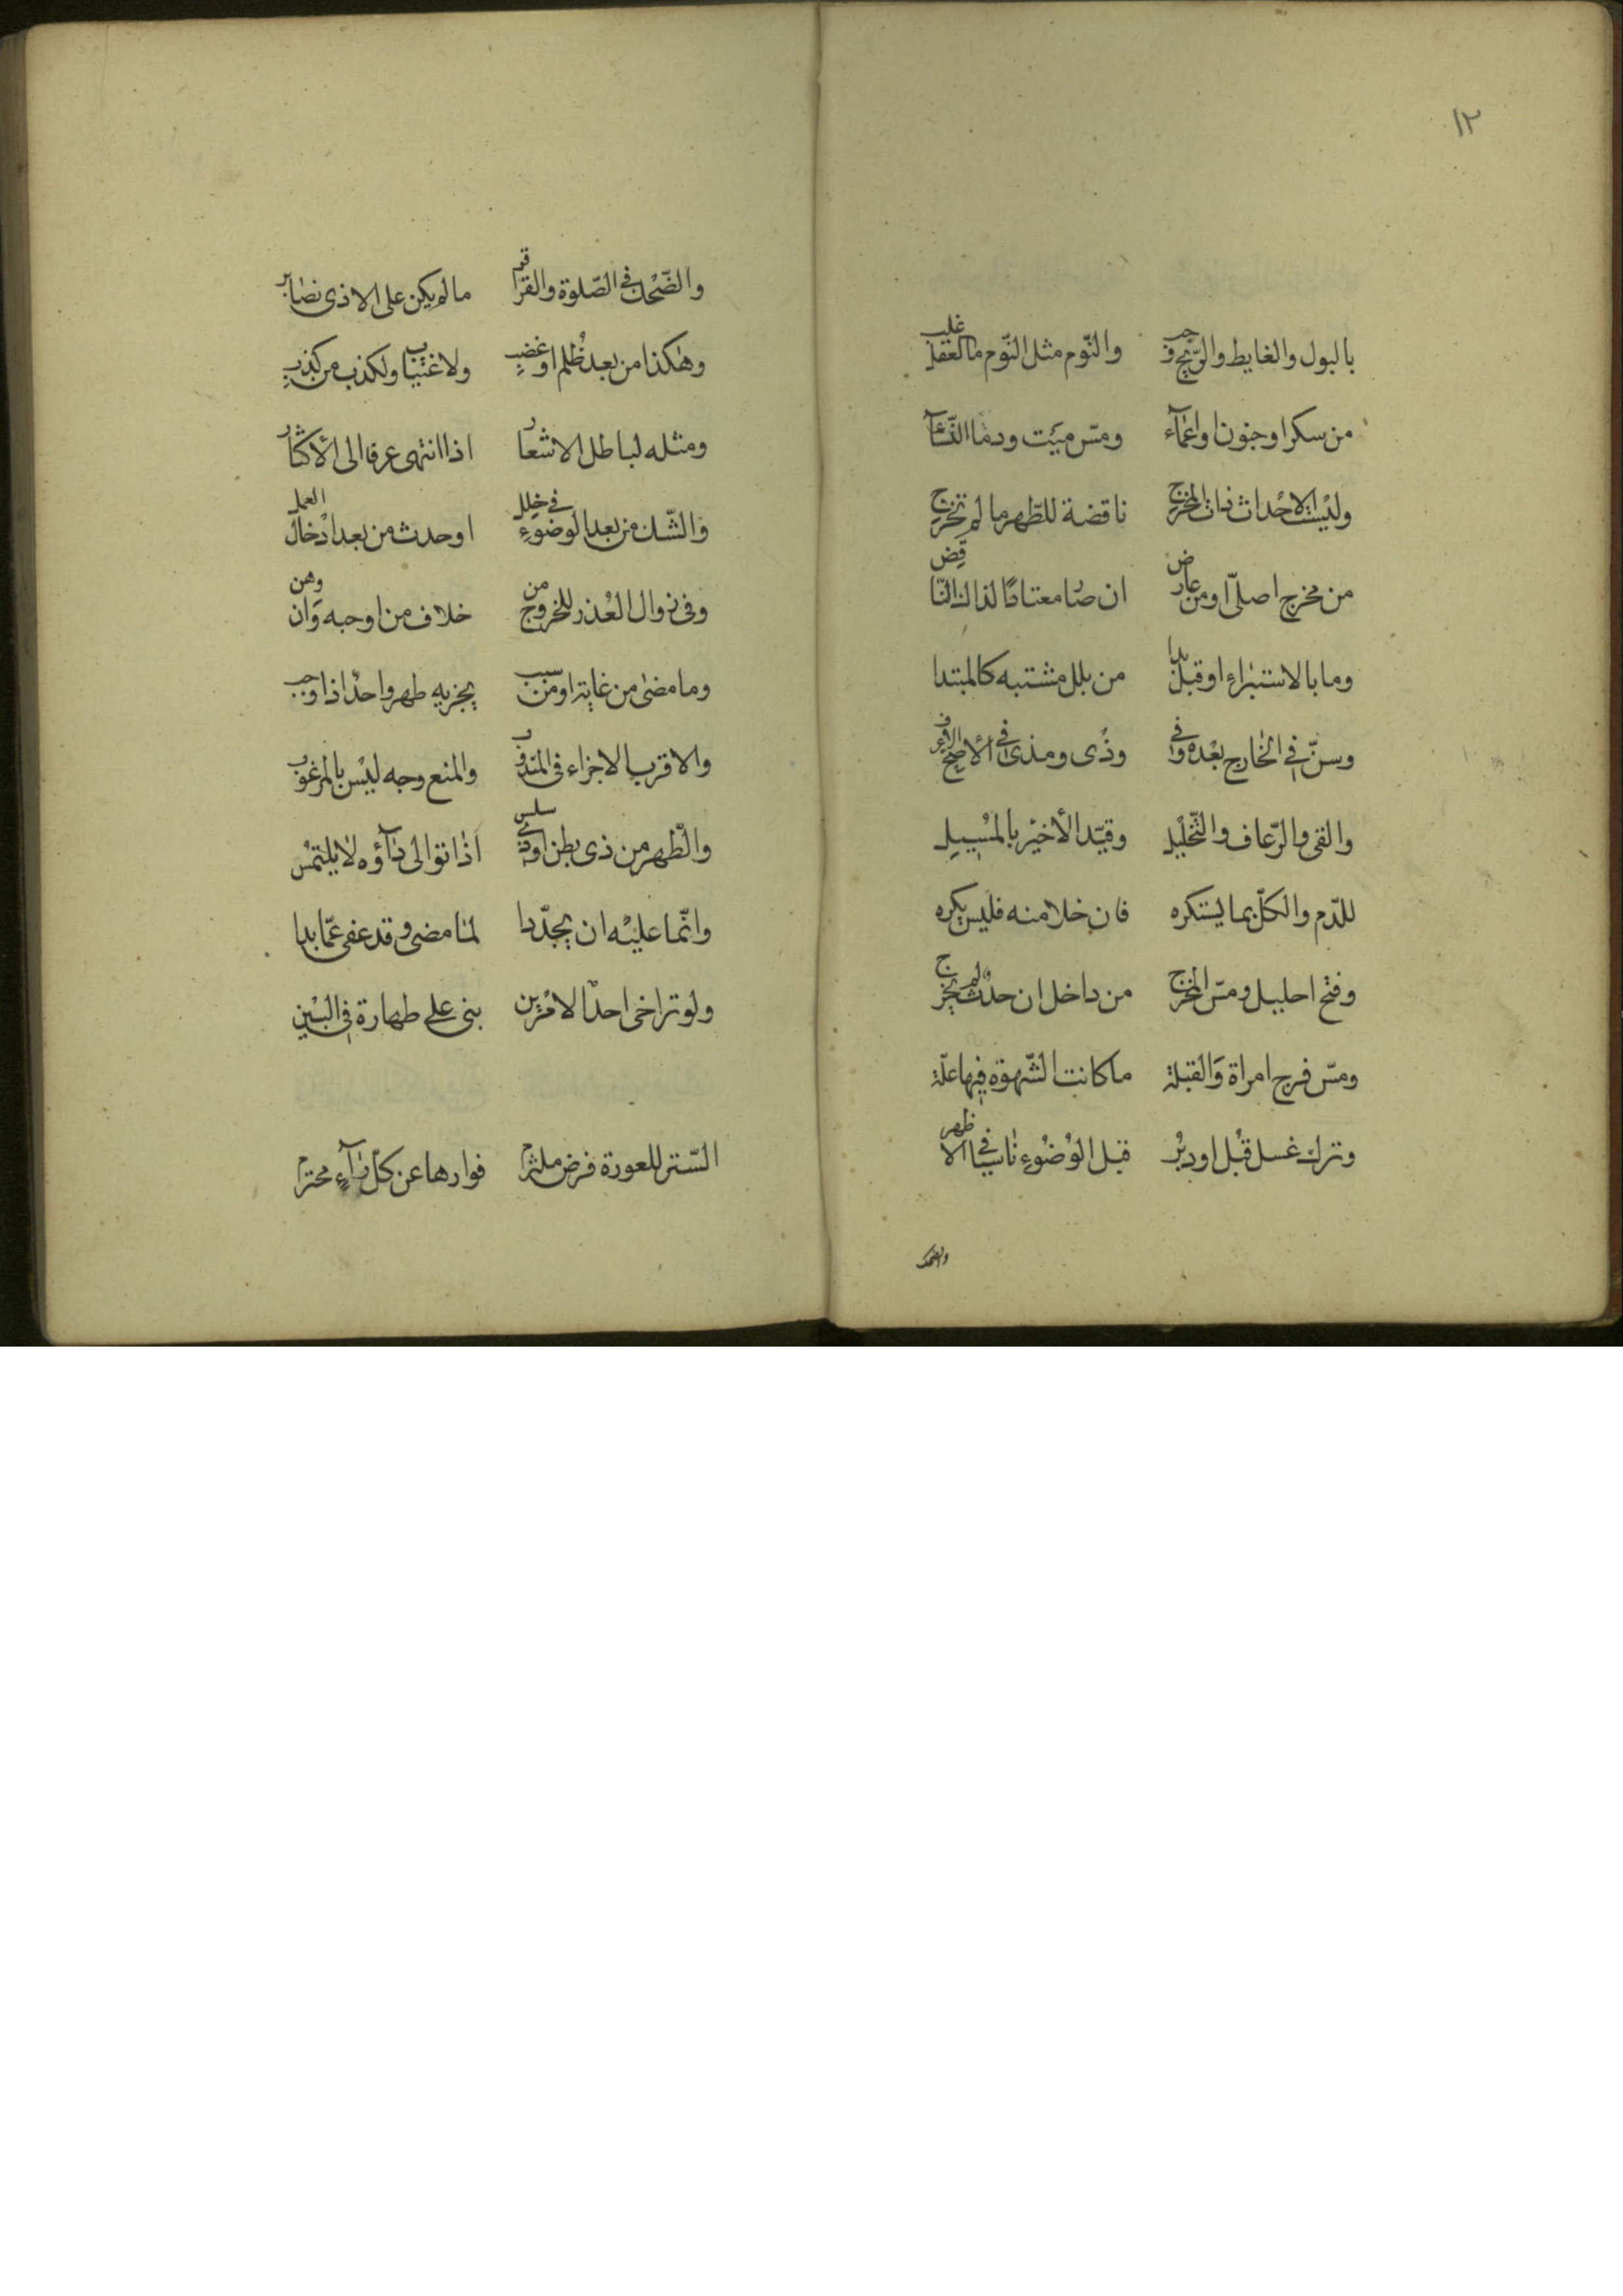 ١٢
بالبول والغايط والرّيح وجب والنّوم مثل النّوم ما العقل غلب
من سكر او جنون او اغمآء ومسّ ميّت ودما النّسآء
وليست الاحداث ذات المخرج ناقضة للطّهر ما لم تخرج
من مخرج اصلىّ او من عارض ان صار معتادًا لذاك النّاقض
وما بالاستبراء او قبل بدا من بلل مشتبه كالمبتدا
وسنّ فى الخارج بعده وفى وذى ومذى فى الأصحّ
والقى والرّعاف والتّخليل وقيّد الأخير بالمسيل
للدّم والكلّ بما يستكره فان خلا منه فليس يكره
وفتح احليل ومسّ المخرج من داخل ان حدث لم يخرج
ومسّ فرج امراة والقبلة ما كانت الشّهوة فيها علّة
وترك غسل قبُل او دبُر قبل الوُضُوء ناسيا فى الاظهر
والضّحك
والضّحك فى الصّلوة والقرا قر ما لم يكن على الاذى نصابر
وهكذا من بعد ظُلم او غضبٍ ولاغتيابٍ ولكذب من كذبٍ
ومثله لباطل الاشعار اذا انتهى عرفا الى الأكثار
والشّك من بعد الوضوء فى خلل او حدث من بعد ادخال العمل
وفى زوال العُذر للخروج من خلاف من اوجبه وان وهن
وما مضى من غاية او من سبب يجزيه طهر واحد اذا وجب
والاقرب الاجزاء فى المندوب والمنع وجه ليْس بالمرغوب
والطّهر من ذى بطن او ذى سلس اذا توالى دآؤه لا يلتمس
وانّما عليه ان يجدّدا لما مضى وقد عفى عمّا بدا
ولو تراخى احد الامْرين بنى على طهارة فى البيْن
السّتر للعورة فرض ملتزم فوارها عن كلّ رآءٍ محترم